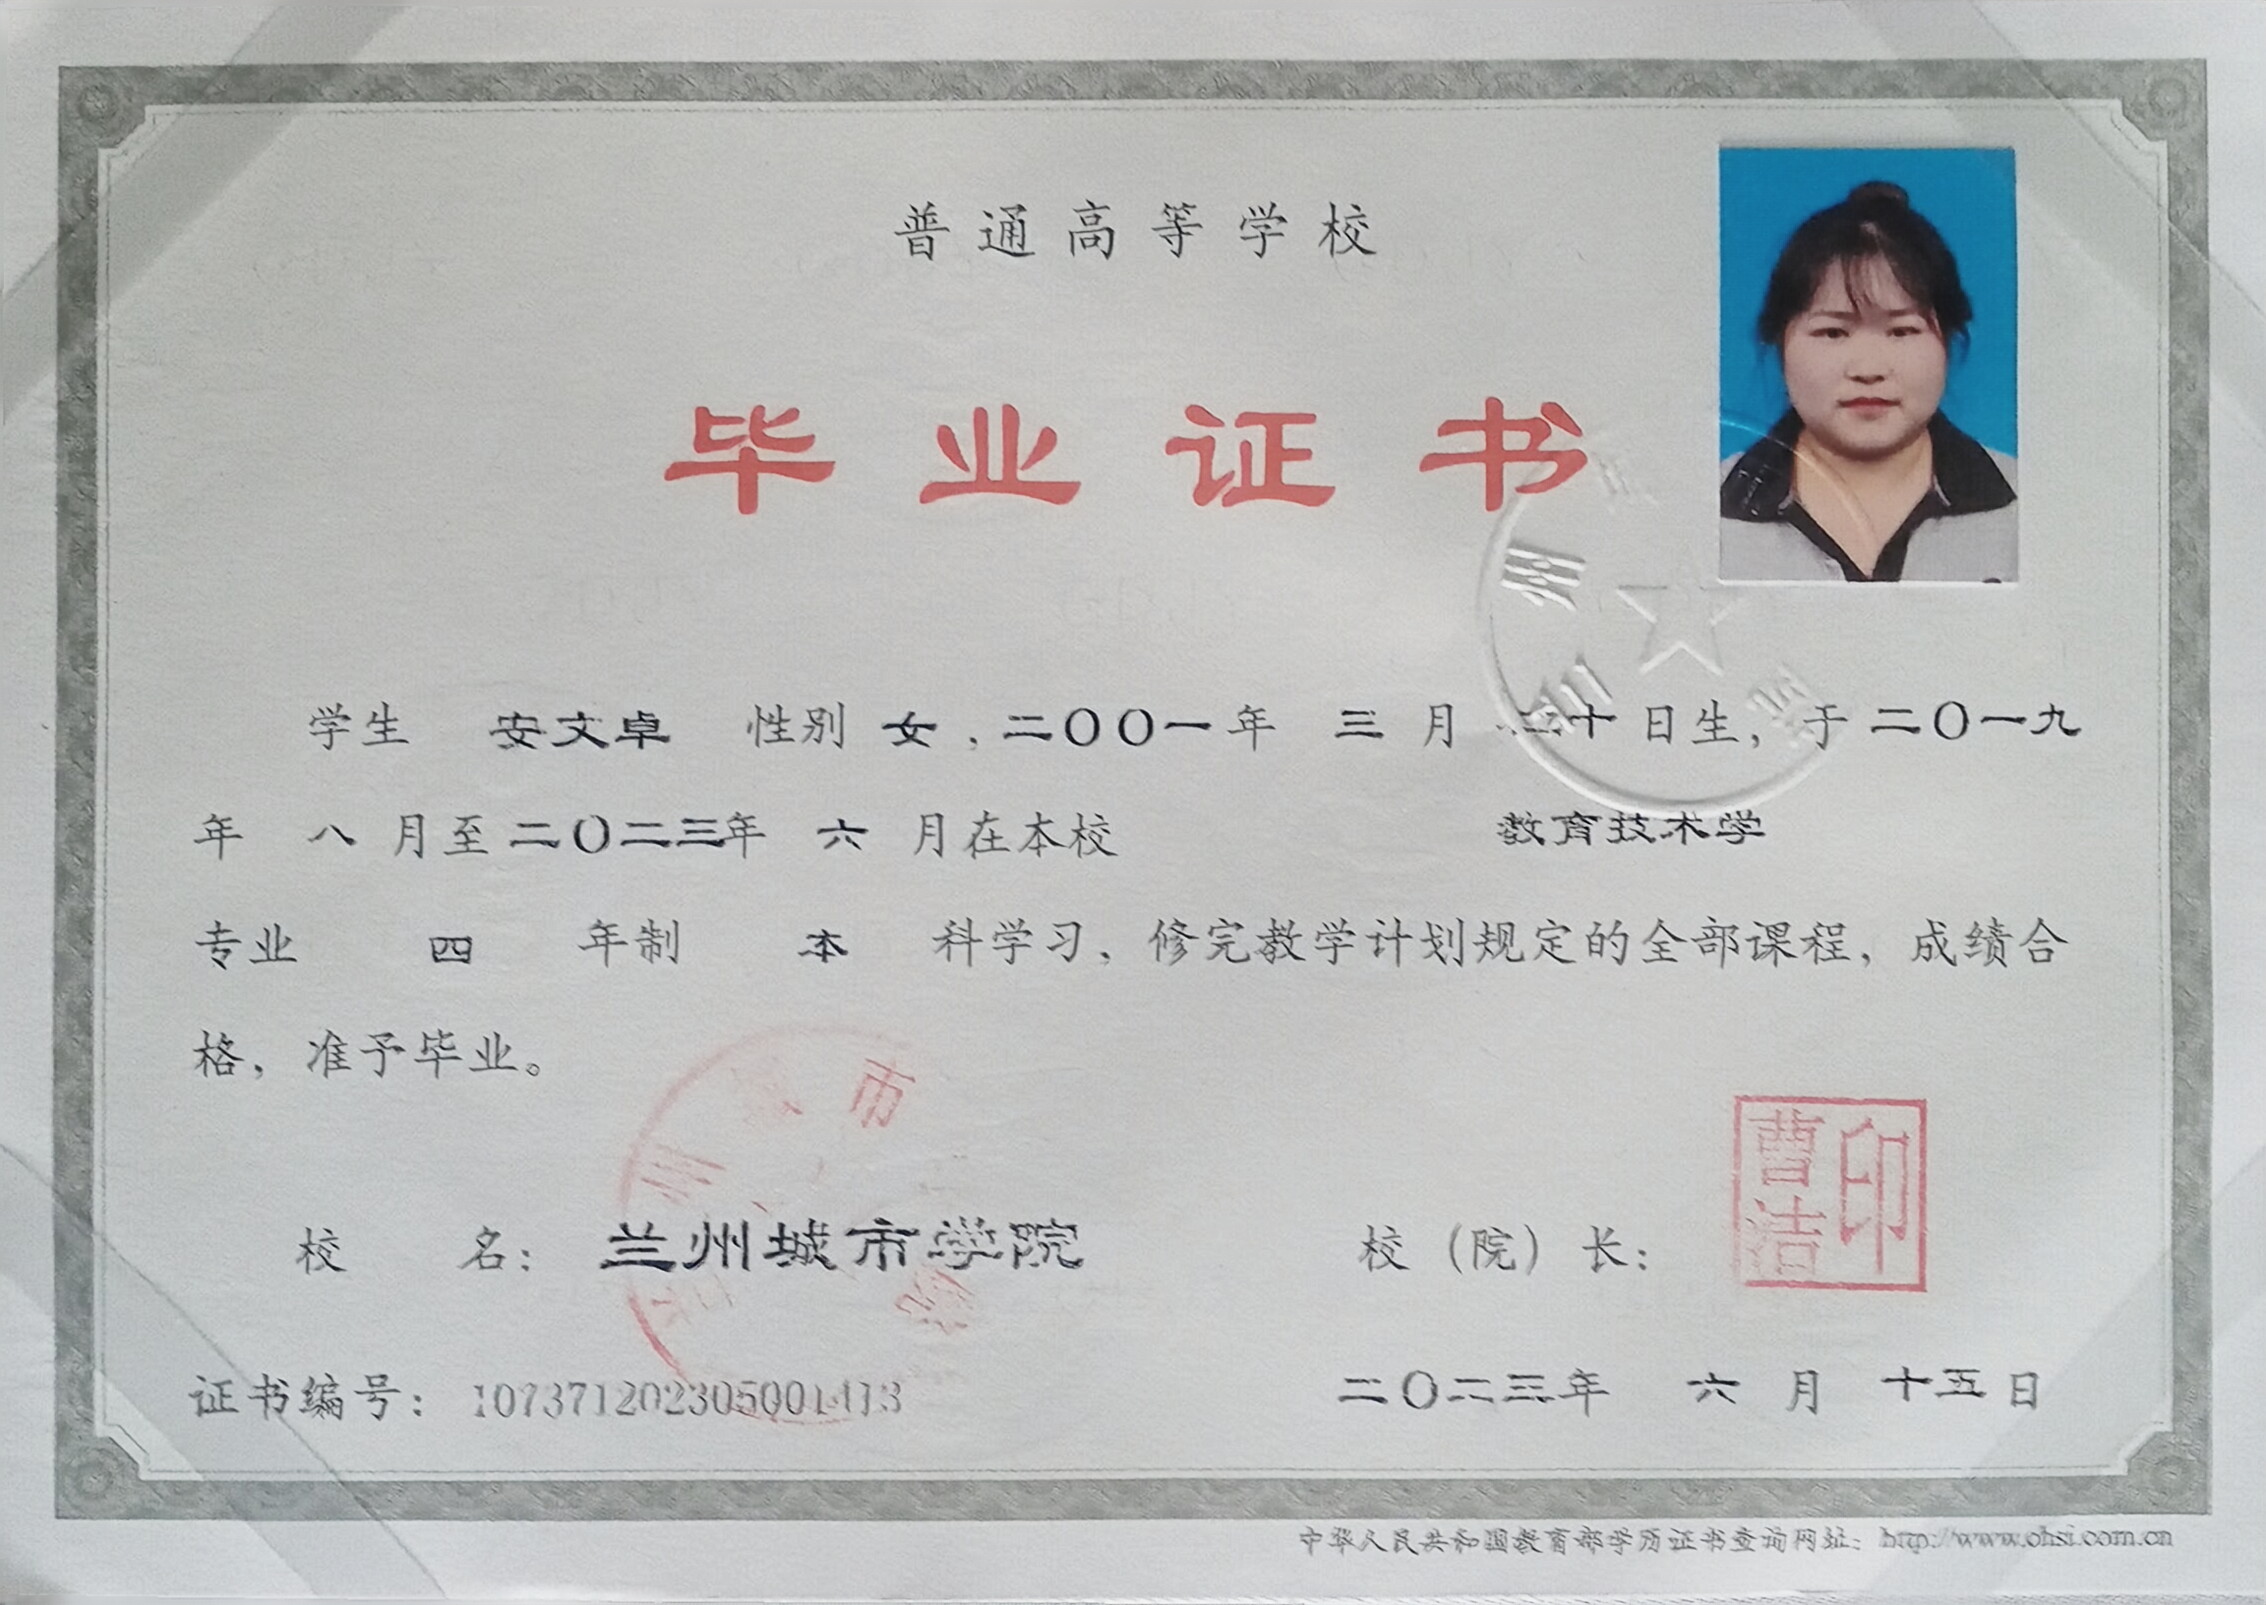 普通高等学校
毕业证书
学生 安文卓 性别 女，二〇〇一年 三 月 二十 日生，于 二〇一九
年 八 月至 二〇二三年 六 月在本校 教育技术学
专业 四 年制 本 科学习，修完教学计划规定的全部课程，成绩合
格，准予毕业。
市
校 名：兰州城市学院 校（院）长：
曹洁印
证书编号：107371202305001413 二〇二三年 六 月 十五 日
中华人民共和国教育部学历证书查询网址：http://www.chsi.com.cn